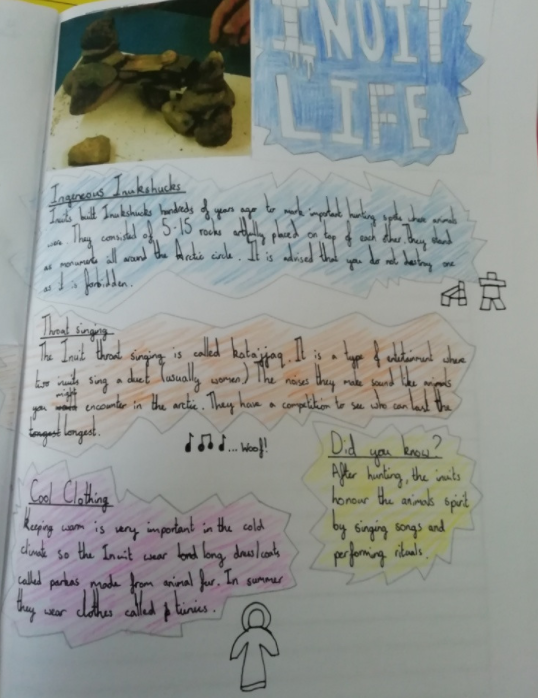 INUIT
LIFE
Ingeneous Inukshucks
Inuits built Inukshucks hundreds of years ago to mark important hunting spots where animals
were. They consisted of 5-15 rocks artfully placed on top of each other. They stand
as monuments all around the Arctic circle. It is advised that you do not destroy one
as I is forbidden.
Throat singing
The Inuit throat singing is called katajjaq. It is a type of entertainment where
two inuits sing a duet (usually women) The noises they make sound like animals
you might encounter in the arctic. They have a competition to see who can last the
longest.
...woof!
Did you know?
After hunting, the inuits
honour the animals spirit
by singing songs and
performing rituals.
Cool Clothing
Keeping warm is very important in the cold
climate so the Inuit wear long dress/coats
called parkas made from animal fur. In summer
they wear clothes called